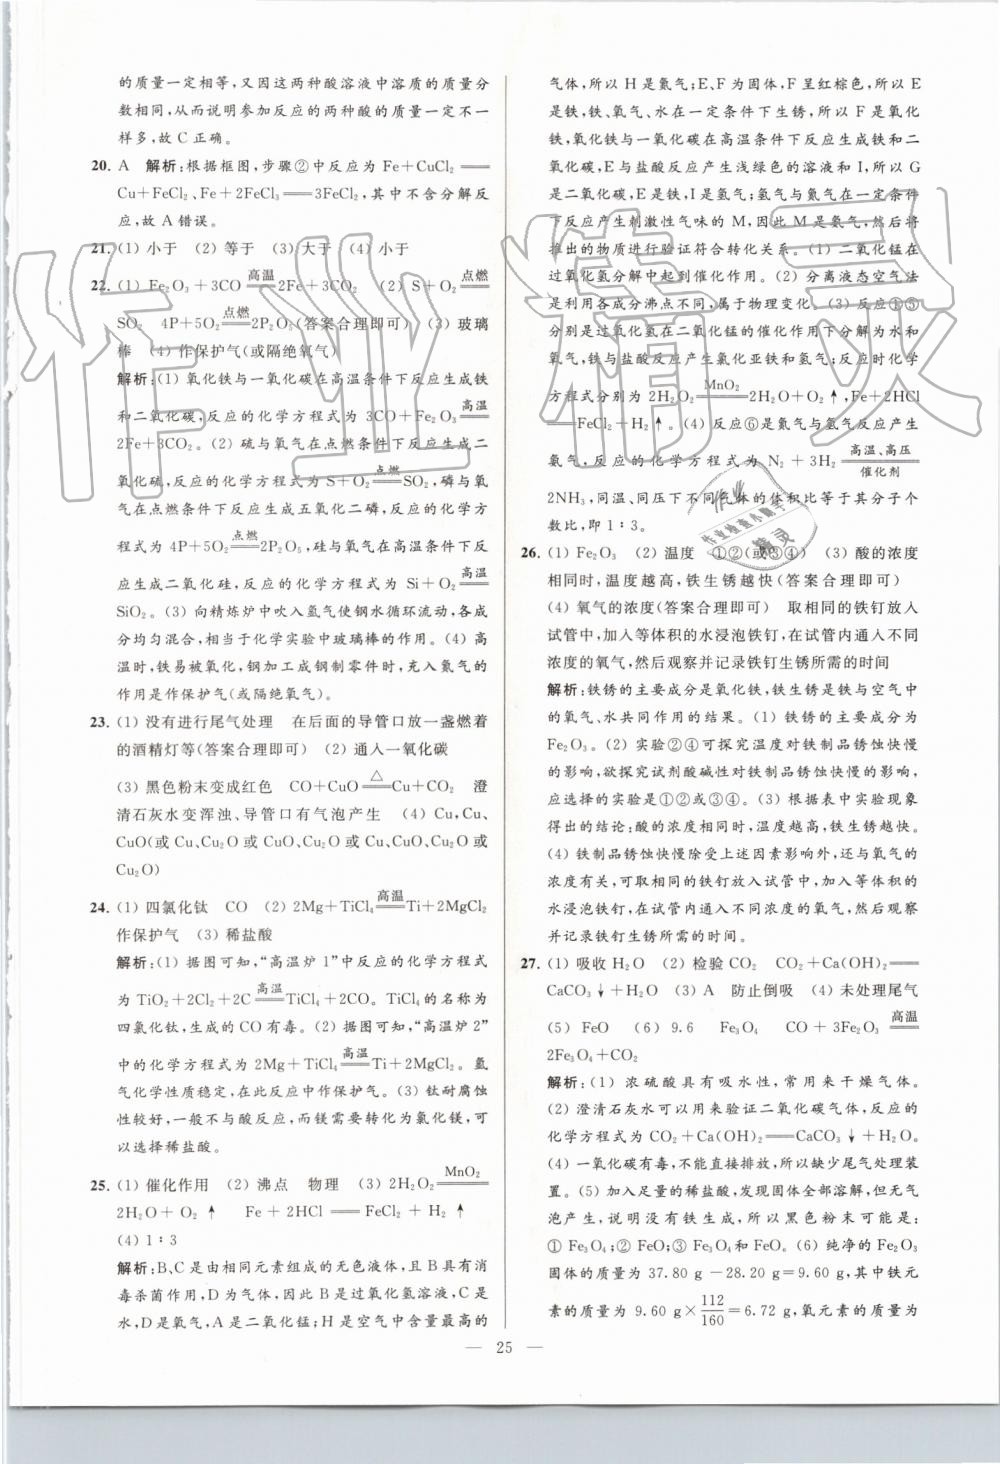 的质量一定相等,又因这两种酸溶液中溶质的质量分
数相同,从而说明参加反应的两种酸的质量一定不一
样多,故 C 正确。
20. A 解析:根据框图,步骤②中反应为 Fe+CuCl₂══
Cu+FeCl₂、Fe+2FeCl₃══3FeCl₂,其中不含分解反
应,故 A 错误。
21. (1) 小于 (2) 等于 (3) 大于 (4) 小于
22. (1) Fe₂O₃+3CO 高温══ 2Fe+3CO₂ (2) S+O₂ 点燃══
SO₂ 4P+5O₂ 点燃══ 2P₂O₅(答案合理即可) (3) 玻璃
棒 (4) 作保护气(或隔绝氧气)
解析:(1) 氧化铁与一氧化碳在高温条件下反应生成铁
和二氧化碳,反应的化学方程式为 3CO+Fe₂O₃ 高温══
2Fe+3CO₂。(2) 硫与氧气在点燃条件下反应生成二
氧化硫,反应的化学方程式为 S+O₂ 点燃══ SO₂,磷与氧气
在点燃条件下反应生成五氧化二磷,反应的化学方
程式为 4P+5O₂ 点燃══ 2P₂O₅,硅与氧气在高温条件下反
应生成二氧化硅,反应的化学方程式为 Si+O₂ 高温══
SiO₂。(3) 向精炼炉中吹入氩气使钢水循环流动,各成
分均匀混合,相当于化学实验中玻璃棒的作用。(4) 高
温时,铁易被氧化,钢加工成钢制零件时,充入氮气的
作用是作保护气(或隔绝氧气)。
23. (1) 没有进行尾气处理 在后面的导管口放一盏燃着
的酒精灯等(答案合理即可) (2) 通入一氧化碳
(3) 黑色粉末变成红色 CO+CuO △══ Cu+CO₂ 澄
清石灰水变浑浊、导管口有气泡产生 (4) Cu,Cu、
CuO(或 Cu、Cu₂O 或 CuO、Cu₂O 或 Cu、CuO、Cu₂O 或
Cu₂O)
24. (1) 四氯化钛 CO (2) 2Mg+TiCl₄ 高温══ Ti+2MgCl₂
作保护气 (3) 稀盐酸
解析:(1) 据图可知,“高温炉 1”中反应的化学方程式
为 TiO₂+2Cl₂+2C 高温══ TiCl₄+2CO。TiCl₄ 的名称为
四氯化钛,生成的 CO 有毒。(2) 据图可知,“高温炉 2”
中的化学方程式为 2Mg+TiCl₄ 高温══ Ti+2MgCl₂。氩
气化学性质稳定,在此反应中作保护气。(3) 钛耐腐蚀
性较好,一般不与酸反应,而镁需要转化为氯化镁,可
以选择稀盐酸。
25. (1) 催化作用 (2) 沸点 物理 (3) 2H₂O₂ MnO₂══
2H₂O+O₂↑ Fe+2HCl══FeCl₂+H₂↑
(4) 1∶3
解析:B、C 是由相同元素组成的无色液体,且 B 具有消
毒杀菌作用,D 为气体,因此 B 是过氧化氢溶液,C 是
水,D 是氧气,A 是二氧化锰;H 是空气中含量最高的
气体,所以 H 是氮气;E、F 为固体,F 呈红棕色,所以 E
是铁,铁、氧气、水在一定条件下生锈,所以 F 是氧化
铁,氧化铁与一氧化碳在高温条件下反应生成铁和二
氧化碳,E 与盐酸反应产生浅绿色的溶液和 I,所以 G
是二氧化碳,E 是铁,I 是氢气;氢气与氮气在一定条件
下反应产生刺激性气味的 M,因此 M 是氨气,然后将
推出的物质进行验证符合转化关系。(1) 二氧化锰在
过氧化氢分解中起到催化作用。(2) 分离液态空气法
是利用各成分沸点不同,属于物理变化。(3) 反应①⑤
分别是过氧化氢在二氧化锰的催化作用下分解为水和
氧气,铁与盐酸反应产生氯化亚铁和氢气;反应时化学
方程式分别为 2H₂O₂ MnO₂══ 2H₂O+O₂↑,Fe+2HCl
══FeCl₂+H₂↑。(4) 反应⑥是氮气与氢气反应产生
氨气,反应的化学方程式为 N₂+3H₂ 高温、高压══催化剂
2NH₃,同温、同压下不同气体的体积比等于其分子个
数比,即 1∶3。
26. (1) Fe₂O₃ (2) 温度 ①②(或③④) (3) 酸的浓度
相同时,温度越高,铁生锈越快(答案合理即可)
(4) 氧气的浓度(答案合理即可) 取相同的铁钉放入
试管中,加入等体积的水浸泡铁钉,在试管内通入不同
浓度的氧气,然后观察并记录铁钉生锈所需的时间
解析:铁锈的主要成分是氧化铁,铁生锈是铁与空气中
的氧气、水共同作用的结果。(1) 铁锈的主要成分为
Fe₂O₃。(2) 实验②④可探究温度对铁制品锈蚀快慢
的影响,欲探究试剂酸碱性对铁制品锈蚀快慢的影响,
应选择的实验是①②或③④。(3) 根据表中实验现象
得出的结论:酸的浓度相同时,温度越高,铁生锈越快。
(4) 铁制品锈蚀快慢除受上述因素影响外,还与氧气的
浓度有关,可取相同的铁钉放入试管中,加入等体积的
水浸泡铁钉,在试管内通入不同浓度的氧气,然后观察
并记录铁钉生锈所需的时间。
27. (1) 吸收 H₂O (2) 检验 CO₂ CO₂+Ca(OH)₂══
CaCO₃↓+H₂O (3) A 防止倒吸 (4) 未处理尾气
(5) FeO (6) 9.6 Fe₃O₄ CO+3Fe₂O₃ 高温══
2Fe₃O₄+CO₂
解析:(1) 浓硫酸具有吸水性,常用来干燥气体。
(2) 澄清石灰水可以用来验证二氧化碳气体,反应的
化学方程式为 CO₂+Ca(OH)₂══CaCO₃↓+H₂O。
(4) 一氧化碳有毒,不能直接排放,所以缺少尾气处理装
置。(5) 加入足量的稀盐酸,发现固体全部溶解,但无气
泡产生,说明没有铁生成,所以黑色粉末可能是:
① Fe₃O₄;② FeO;③ Fe₃O₄ 和 FeO。(6) 纯净的 Fe₂O₃
固体的质量为 37.80 g-28.20 g=9.60 g,其中铁元
素的质量为 9.60 g×112/160=6.72 g,氧元素的质量为
— 25 —
作业精灵
作业
作业检查小助手
精灵